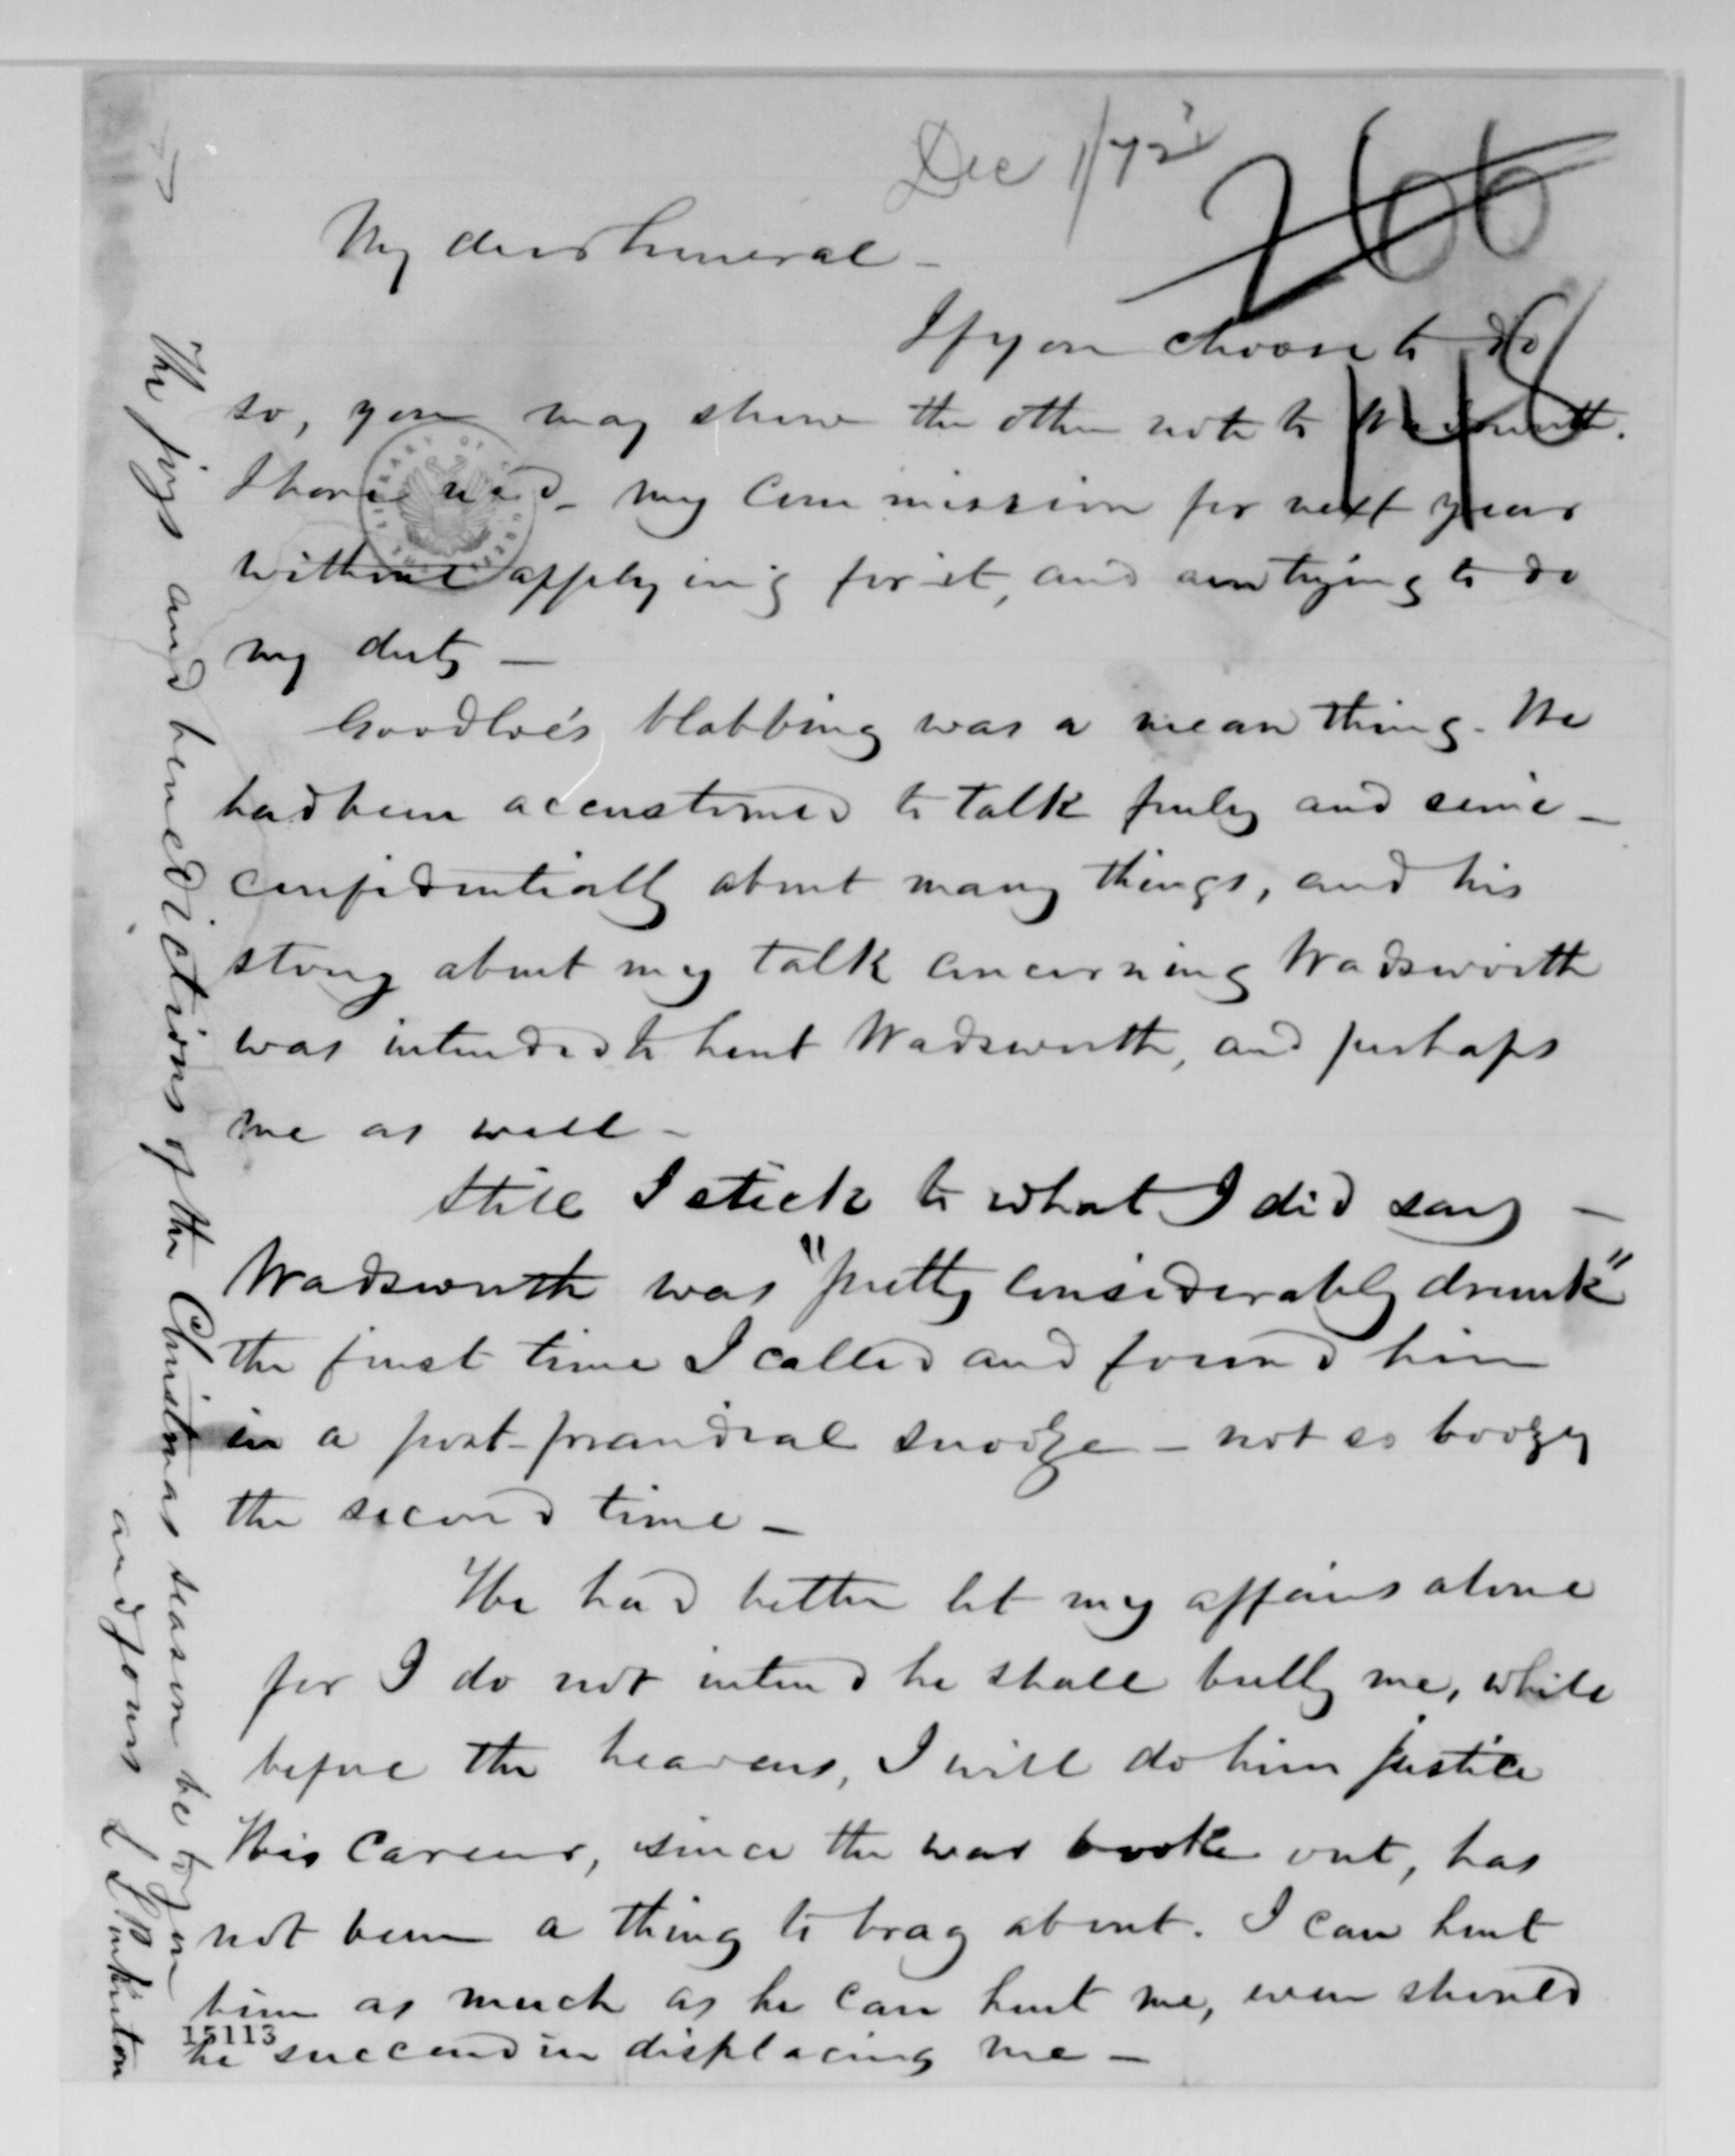 Dec 1/72
266
148
My dear General —
If you choose to do
so, you may show the other note to Wadsworth.
I have recd. my Commission for next year
without applying for it, and am trying to do
my duty —
Goodloe's blabbing was a mean thing. We
had been accustomed to talk freely and semi-
confidentially about many things, and his
story about my talk concerning Wadsworth
was intended to hurt Wadsworth, and perhaps
me as well —
Still I stick to what I did say —
Wadsworth was "pretty considerably drunk"
the first time I called and found him
in a post-prandial snooze — not so boozy
the second time —
He had better let my affairs alone
for I do not intend he shall bully me, while
before the heavens, I will do him justice
His career, since the war broke out, has
not been a thing to brag about. I can hurt
him as much as he can hurt me, even should
he succeed in displacing me —
15113
The joys and benedictions of the Christmas season be to you
and yours